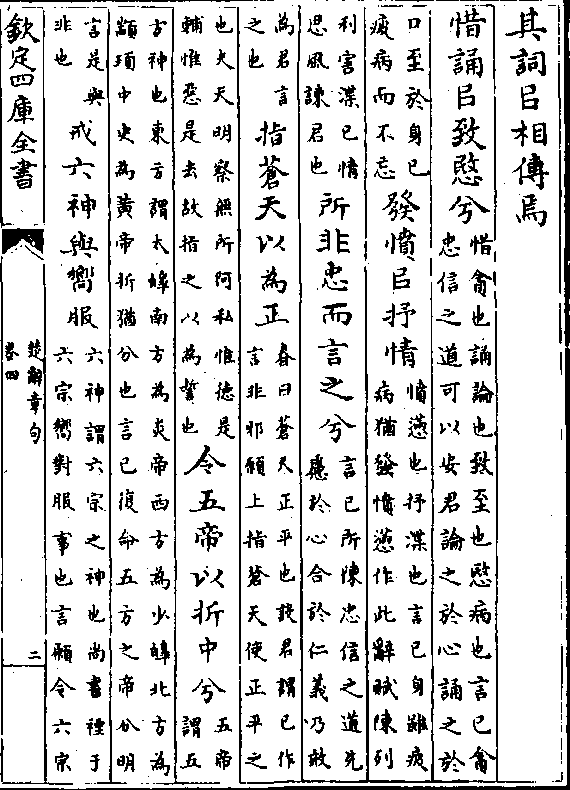 其詞㠯相傳焉
惜誦㠯致愍兮
惜貪也誦論也致至也愍病也言已貪
忠信之道可以安君論之於心誦之於
口至於身已
疲病而不忘
發憤㠯抒情
憤懣也抒渫也言已身雖疲
病猶發憤懣作此辭賦陳列
利害渫已情
思風諫君也
所非忠而言之兮
言已所陳忠信之道先
慮於心合於仁義乃敢
為君言
之也
指蒼天以為正
春曰蒼天正平也設君謂已作
言非邪願上指蒼天使正平之
也夫天明察無所阿私惟德是
輔惟惡是去故指之以為誓也
令五帝以折中兮
五帝
謂五
方神也東方謂太皥南方為炎帝西方為少皥北方為
顓頊中央為黄帝折猶分也言已復命五方之帝分明
言是與
非也
戒六神與嚮服
六神謂六宗之神也尚書禋于
六宗嚮對服事也言願令六宗
欽定四庫全書
楚辭章句
卷四
二